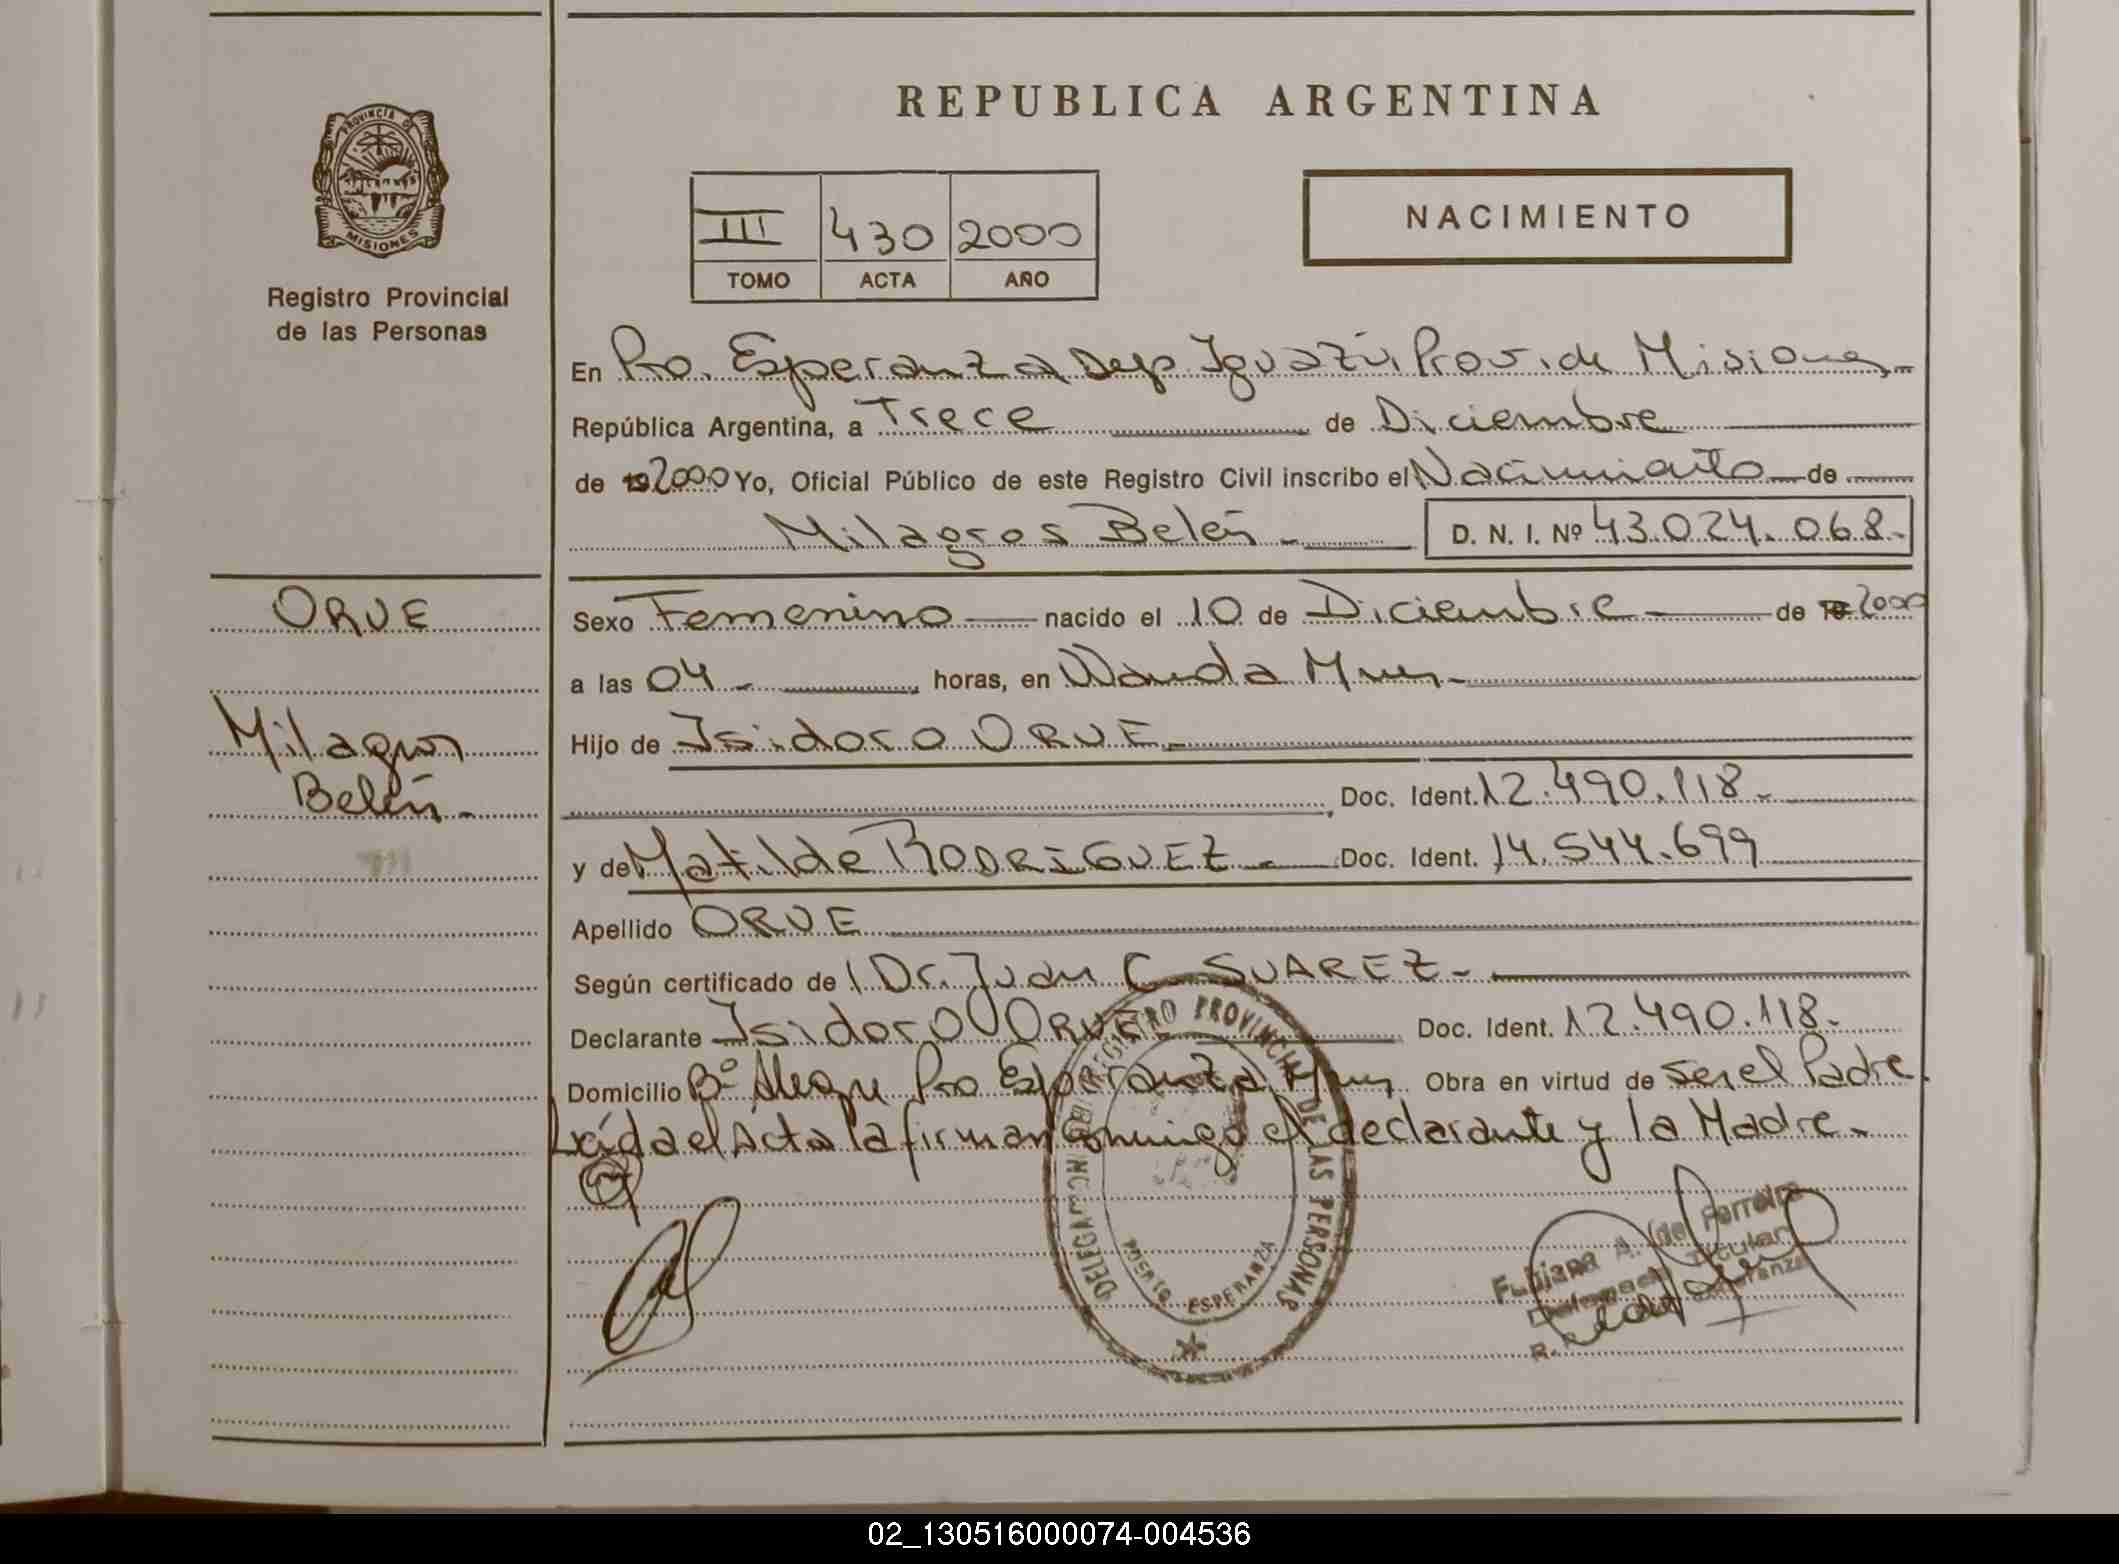 REPUBLICA ARGENTINA
PROVINCIA DE
MISIONES
Registro Provincial
de las Personas
III 430 2000
TOMO ACTA AÑO
NACIMIENTO
En Pto. Esperanza Dep Iguazú, Prov. de Misiones
República Argentina, a Trece de Diciembre
de 19 2000 Yo, Oficial Público de este Registro Civil inscribo el Nacimiento de
Milagros Belén - D. N. I. Nº 43.024.068-
ORUE
Milagros
Belén -
Sexo Femenino nacido el 10 de Diciembre de 2000
a las 04 - horas, en Wanda Mnes -
Hijo de Isidoro ORUE -
Doc. Ident. 12.490.118 -
y de Matilde RODRIGUEZ - Doc. Ident. 14.544.699
Apellido ORUE
Según certificado de Dr. Juan C SUAREZ -
Declarante Isidoro ORUE Doc. Ident. 12.490.118 -
Domicilio Bº Alegre Pto Esperanza Mnes Obra en virtud de ser el Padre
Leída el Acta la firman conmigo el declarante y la Madre -
REGISTRO PROVINCIAL DE LAS PERSONAS
PUERTO ESPERANZA
Fabiana A. de Ferreira
Titular
02_130516000074-004536